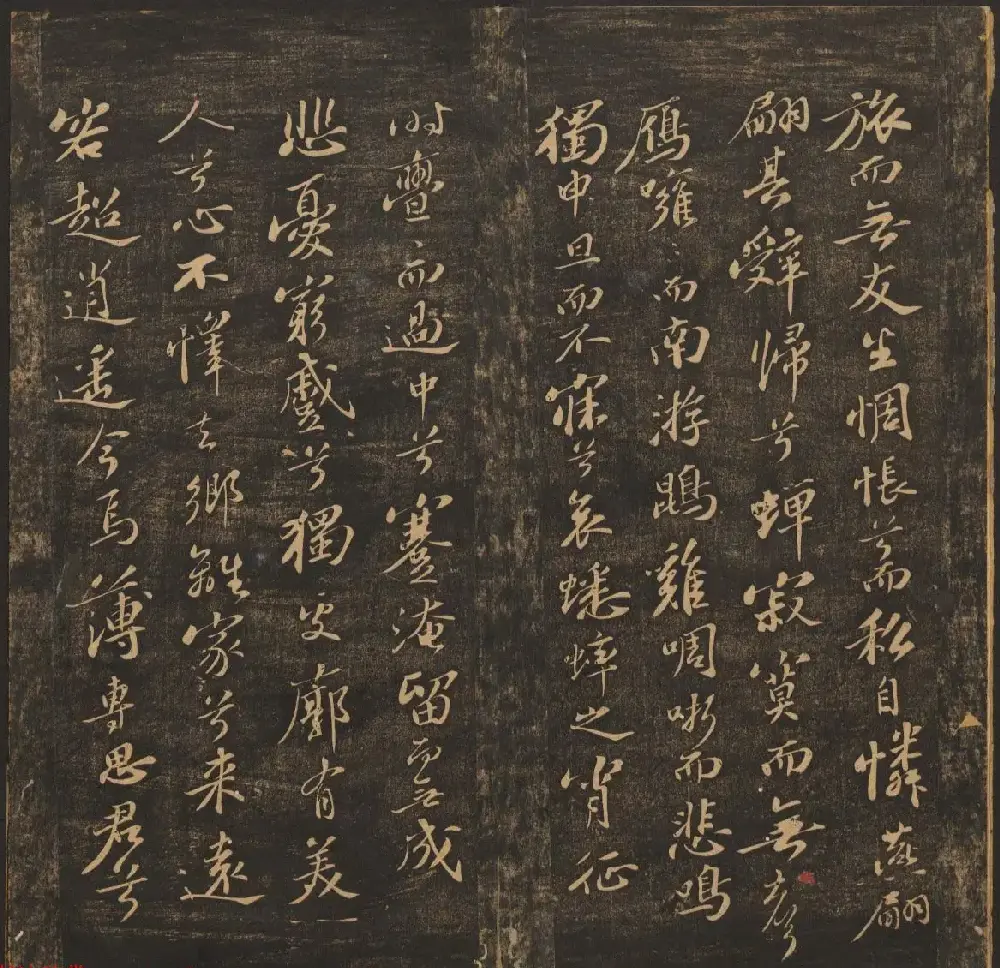 旅而無友坐惆悵兮而私自憐燕翩
翩其辭歸兮蟬寂寞而無聲
鴈噰〻而南游鵾雞啁哳而悲鳴
獨申旦而不寐兮哀蟋蟀之宵征
時亹〻而過中兮蹇淹留而無成
悲憂窮蹙兮獨處廓有美一
人兮心不懌去鄉離家兮來遠
客超逍遙今焉薄專思君兮